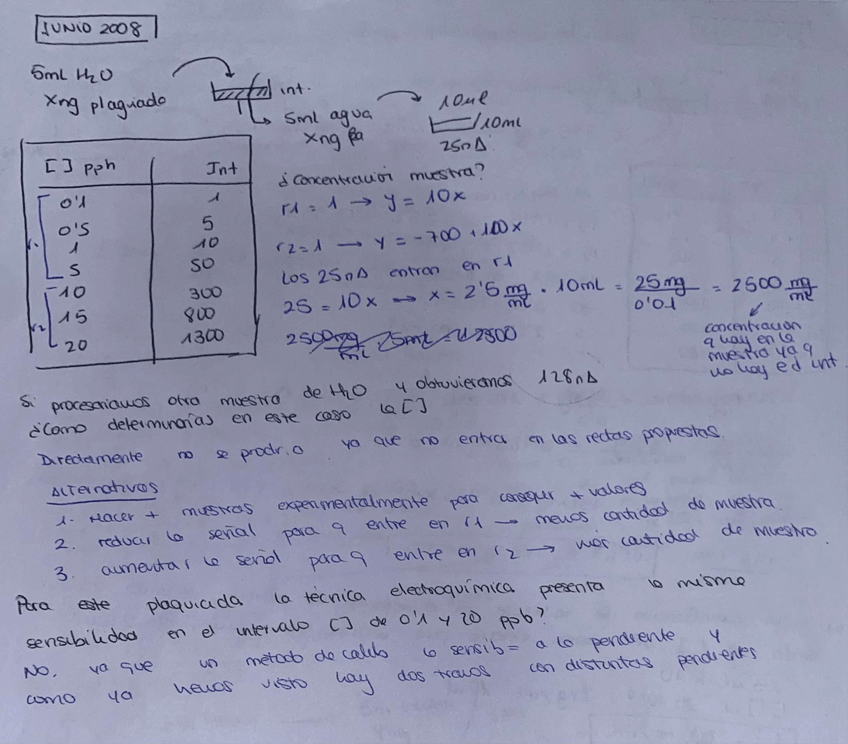 JUNIO 2008
5mL H2O
Xng plaguiado
int.
5ml agua
Xng pa
10µl
10mL
25nA
[ ] ppb Int
0'1 1
0'5 5
1 10
5 50
10 300
15 800
20 1300
r1
r2
¿Concentración muestra?
r1 = 1 → y = 10x
r2 = 1 → y = -700 + 100x
Los 25nA entran en r1
25 = 10x → x = 2'5 mg/ml · 10mL = 25mg/0'01 = 2500 mg/ml
concentracion
q hay en la
muestra ya q
no hay ed int.
Si procesaramos otra muestra de H2O y obtuvieramos 128nA
¿Como determinarías en este caso la [ ]
Directamente no se prodría ya que no entra en las rectas propuestas.
Alternativas
1. Hacer + muestras experimentalmente para conseguir + valores
2. reducir la señal para q entre en r1 → menos cantidad de muestra.
3. aumentar la señal para q entre en r2 → más cantidad de muestra.
Para este plaguicida la técnica electroquímica presenta la misma
sensibilidad en el intervalo [ ] de 0'1 y 20 ppb?
No, ya que un método de calib la sensib = a la pendiente y
como ya hemos visto hay dos tramos con distintas pendientes